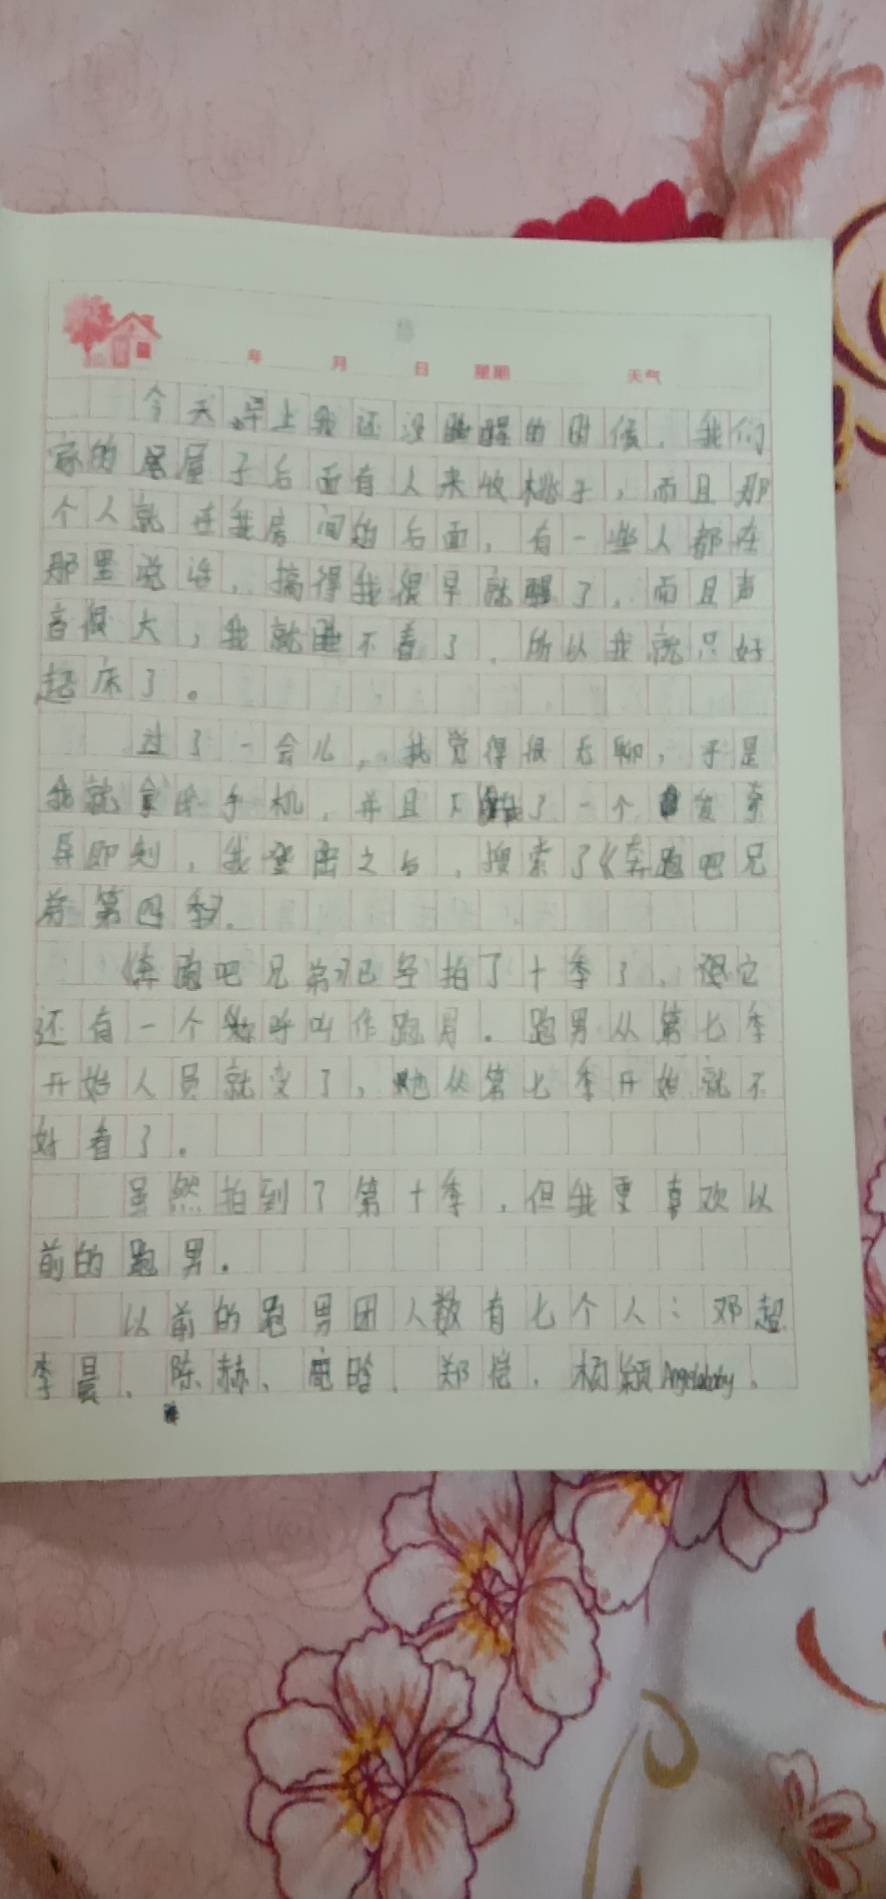 年 月 日 星期 天气
今天早上我还没睡醒的时候,我们
家的屋子后面有人来收桃子,而且那
个人就在我房间的后面,有一些人都在
那里说话,搞得我很早就醒了,而且声
音很大,我就睡不着了,所以我就只好
起床了。
过了一会儿,我觉得很无聊,于是
我就拿出手机,并且下载了一个
,我登陆之后,搜索了《奔跑吧兄
弟第四季》。
《奔跑吧兄弟》已经拍了十季了,它
还有一个称呼叫作跑男。跑男从第七季
开始人员就变了,从第七季开始就不
好看了。
虽然拍到了第十季,但我更喜欢以
前的跑男。
以前的跑男团人数有七个人:邓超
李晨、陈赫、鹿晗、郑恺、杨颖Angelababy、